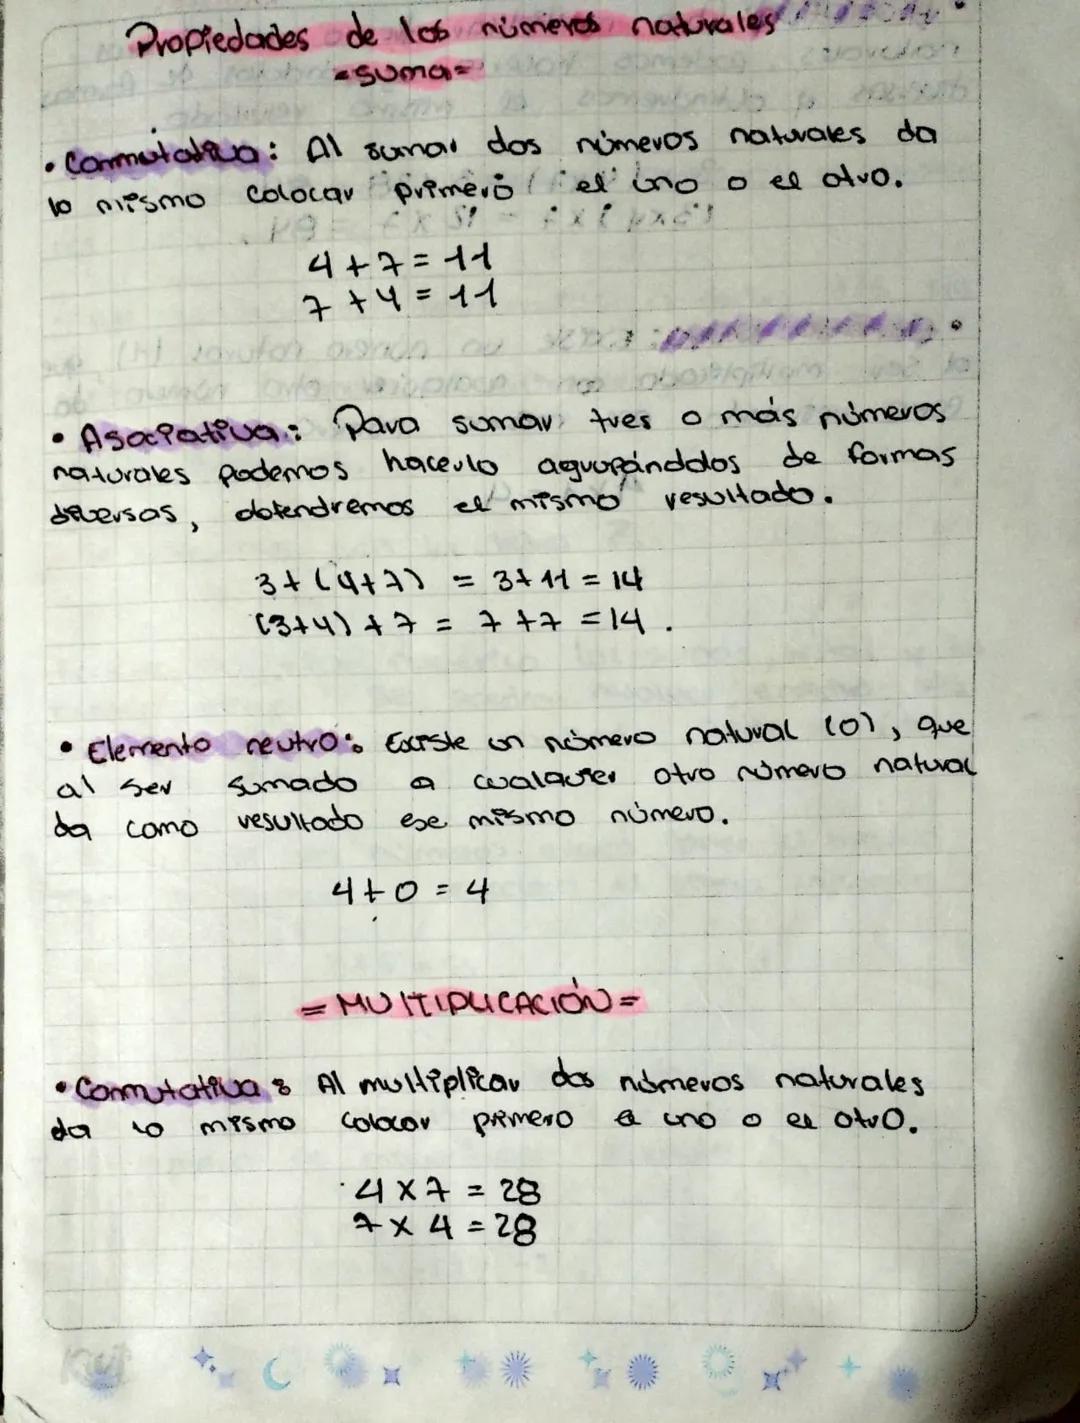 Propiedades de los números naturales
=suma=
• Conmutativa: Al sumar dos números naturales da
lo mismo colocar primero el uno o el otro.
4+7=11
7+4=11
• Asociativa: Para sumar tres o más números
naturales podemos hacerlo agrupánddos de formas
diversas, obtendremos el mismo resultado.
3+(4+7) = 3+11=14
(3+4)+7 = 7+7=14.
• Elemento neutro: Existe un número natural (0), que
al ser sumado a cualquier otro número natural
da como resultado ese mismo número.
4+0=4
=MULTIPLICACIÓN=
• Conmutativa: Al multiplicar dos números naturales
da lo mismo colocar primero a uno o el otro.
4x7=28
7x4=28